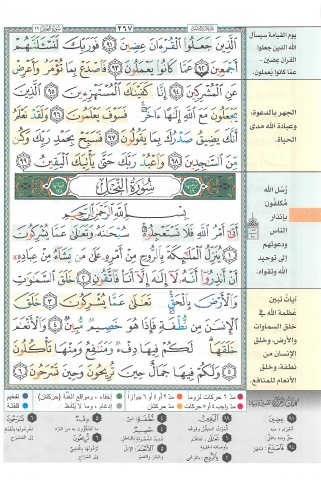 ٢٦٧
الَّذِينَ جَعَلُوا الْقُرْءَانَ عِضِينَ ٩١ فَوَرَبِّكَ لَنَسْـَٔلَنَّهُمْ
أَجْمَعِينَ ٩٢ عَمَّا كَانُوا يَعْمَلُونَ ٩٣ فَاصْدَعْ بِمَا تُؤْمَرُ وَأَعْرِضْ
عَنِ الْمُشْرِكِينَ ٩٤ إِنَّا كَفَيْنَٰكَ الْمُسْتَهْزِءِينَ ٩٥ الَّذِينَ
يَجْعَلُونَ مَعَ اللَّهِ إِلَٰهًا ءَاخَرَ فَسَوْفَ يَعْلَمُونَ ٩٦ وَلَقَدْ نَعْلَمُ
أَنَّكَ يَضِيقُ صَدْرُكَ بِمَا يَقُولُونَ ٩٧ فَسَبِّحْ بِحَمْدِ رَبِّكَ وَكُن
مِّنَ السَّٰجِدِينَ ٩٨ وَاعْبُدْ رَبَّكَ حَتَّىٰ يَأْتِيَكَ الْيَقِينُ ٩٩
سُورَةُ النَّحْلِ
بِسْمِ اللَّهِ الرَّحْمَٰنِ الرَّحِيمِ
أَتَىٰ أَمْرُ اللَّهِ فَلَا تَسْتَعْجِلُوهُ سُبْحَٰنَهُ وَتَعَٰلَىٰ عَمَّا يُشْرِكُونَ
١ يُنَزِّلُ الْمَلَٰئِكَةَ بِالرُّوحِ مِنْ أَمْرِهِ عَلَىٰ مَن يَشَاءُ مِنْ عِبَادِهِ
أَنْ أَنذِرُوا أَنَّهُ لَا إِلَٰهَ إِلَّا أَنَا فَاتَّقُونِ ٢ خَلَقَ السَّمَٰوَٰتِ
وَالْأَرْضَ بِالْحَقِّ تَعَٰلَىٰ عَمَّا يُشْرِكُونَ ٣ خَلَقَ
الْإِنسَٰنَ مِن نُّطْفَةٍ فَإِذَا هُوَ خَصِيمٌ مُّبِينٌ ٤ وَالْأَنْعَٰمَ
خَلَقَهَا لَكُمْ فِيهَا دِفْءٌ وَمَنَٰفِعُ وَمِنْهَا تَأْكُلُونَ
٥ وَلَكُمْ فِيهَا جَمَالٌ حِينَ تُرِيحُونَ وَحِينَ تَسْرَحُونَ ٦
يوم القيامة سيسأل
الله الذين جعلوا
القرآن عضين -
عمّا كانوا يعملون.
الجهر بالدعوة،
وعبادة الله مدى
الحياة.
رُسُل الله
مكلفون
بإنذار
الناس
ودعوتهم
إلى توحيد
الله وتقواه.
آيات تبين
عظمة الله في
خلق السماوات
والأرض، وخلق
الإنسان من
نطفة، وخلق
الأنعام للمنافع.
مدّ ٦ حركات لزوماً
مدّ ٢ أو ٤ أو ٦ جوازاً
إخفاء، ومواقع الغُنَّة (حركتان)
تفخيم
مدّ واجب ٤ أو ٥ حركات
مدّ حركتان
إدغام، وما لا يُلفَظ
قلقلة